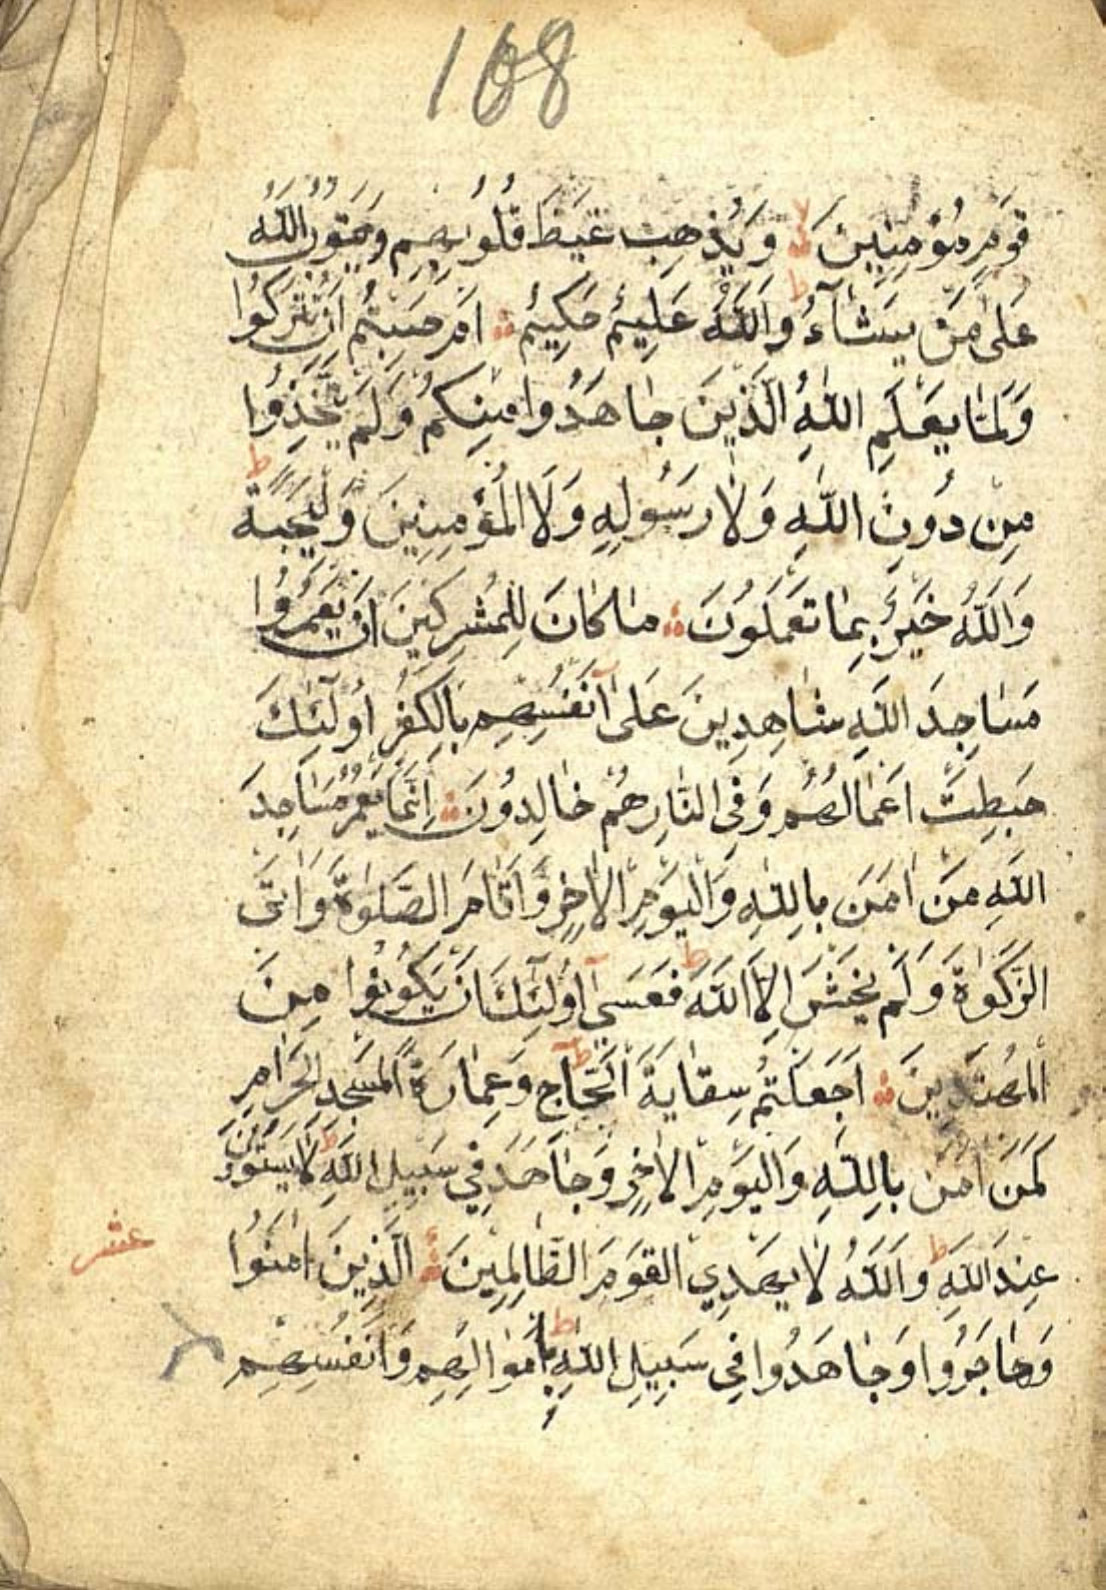 168
قَوْمٍ مُؤْمِنِينَ ۙ وَيُذْهِبْ غَيْظَ قُلُوبِهِمْ وَيَتُوبُ اللَّهُ
عَلَى مَنْ يَشَاءُ ط وَاللَّهُ عَلِيمٌ حَكِيمٌ اَمْ حَسِبْتُمْ اَنْ تُتْرَكُوا
وَلَمَّا يَعْلَمِ اللَّهُ الَّذِينَ جَاهَدُوا مِنْكُمْ وَلَمْ يَتَّخِذُوا
مِنْ دُونِ اللَّهِ وَلَا رَسُولِهِ وَلَا الْمُؤْمِنِينَ وَلِيجَةً ط
وَاللَّهُ خَبِيرٌ بِمَا تَعْمَلُونَ مَا كَانَ لِلْمُشْرِكِينَ اَنْ يَعْمُرُوا
مَسَاجِدَ اللَّهِ شَاهِدِينَ عَلَى اَنْفُسِهِمْ بِالْكُفْرِ اُولَئِكَ
حَبِطَتْ اَعْمَالُهُمْ وَفِي النَّارِ هُمْ خَالِدُونَ اِنَّمَا يَعْمُرُ مَسَاجِدَ
اللَّهِ مَنْ اٰمَنَ بِاللَّهِ وَالْيَوْمِ الْاٰخِرِ وَاَقَامَ الصَّلٰوةَ وَاٰتَى
الزَّكٰوةَ وَلَمْ يَخْشَ اِلَّا اللَّهَ ط فَعَسَى اُولَئِكَ اَنْ يَكُونُوا مِنَ
الْمُهْتَدِينَ اَجَعَلْتُمْ سِقَايَةَ الْحَاجِّ وَعِمَارَةَ الْمَسْجِدِ الْحَرَامِ
كَمَنْ اٰمَنَ بِاللَّهِ وَالْيَوْمِ الْاٰخِرِ وَجَاهَدَ فِي سَبِيلِ اللَّهِ ط لَا يَسْتَوُنَ
عِنْدَ اللَّهِ ط وَاللَّهُ لَا يَهْدِي الْقَوْمَ الظَّالِمِينَ الَّذِينَ اٰمَنُوا
عشر
وَهَاجَرُوا وَجَاهَدُوا فِي سَبِيلِ اللَّهِ بِاَمْوَالِهِمْ وَاَنْفُسِهِمْ